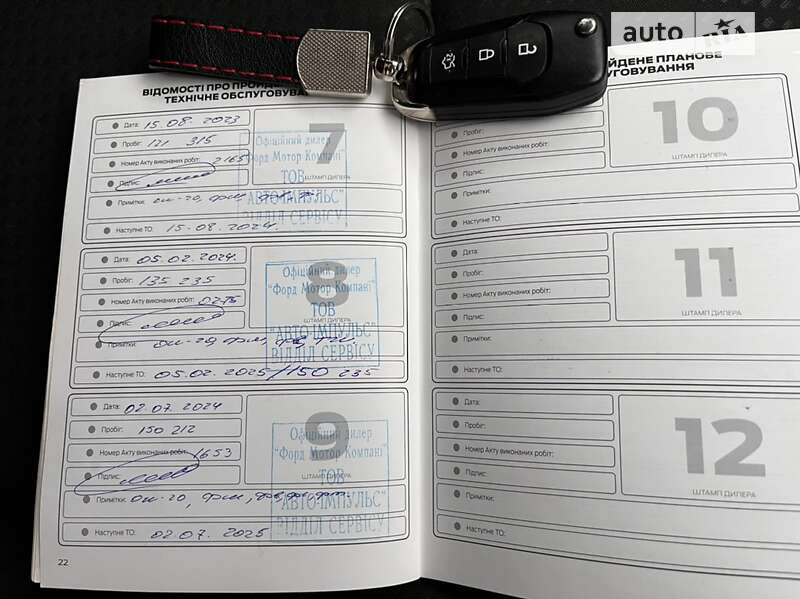 auto RIA
ВІДОМОСТІ ПРО ПРОЙДЕ
ТЕХНІЧНЕ ОБСЛУГОВУВА
Дата: 15.08.2023
Пробіг: 121 315
Номер Акту виконаних робіт: 2165
Підпис:
Примітки: ом-го, фрм,
Наступне ТО: 15-08.2024.
7
ШТАМП ДИЛЕРА
Офіційний дилер
"Форд Мотор Компані"
ТОВ
"АВТО-ІМПУЛЬС"
ВІДДІЛ СЕРВІСУ
Дата: 05.02.2024.
Пробіг: 135 235
Номер Акту виконаних робіт: 0275
Підпис:
Примітки: ом-го, фрм,
Наступне ТО: 05.02.2025/150 235
8
ШТАМП ДИЛЕРА
Офіційний дилер
"Форд Мотор Компані"
ТОВ
"АВТО-ІМПУЛЬС"
ВІДДІЛ СЕРВІСУ
Дата: 02.07.2024
Пробіг: 150 212
Номер Акту виконаних робіт: 1653
Підпис:
Примітки: ом-го, фрм,
Наступне ТО: 02.07.2025
9
ШТАМП ДИЛЕРА
Офіційний дилер
"Форд Мотор Компані"
ТОВ
"АВТО-ІМПУЛЬС"
ВІДДІЛ СЕРВІСУ
22
ЙДЕНЕ ПЛАНОВЕ
УГОВУВАННЯ
Пробіг:
Номер Акту виконаних робіт:
Підпис:
Примітки:
Наступне ТО:
10
ШТАМП ДИЛЕРА
Дата:
Пробіг:
Номер Акту виконаних робіт:
Підпис:
Примітки:
Наступне ТО:
11
ШТАМП ДИЛЕРА
Дата:
Пробіг:
Номер Акту виконаних робіт:
Підпис:
Примітки:
Наступне ТО:
12
ШТАМП ДИЛЕРА